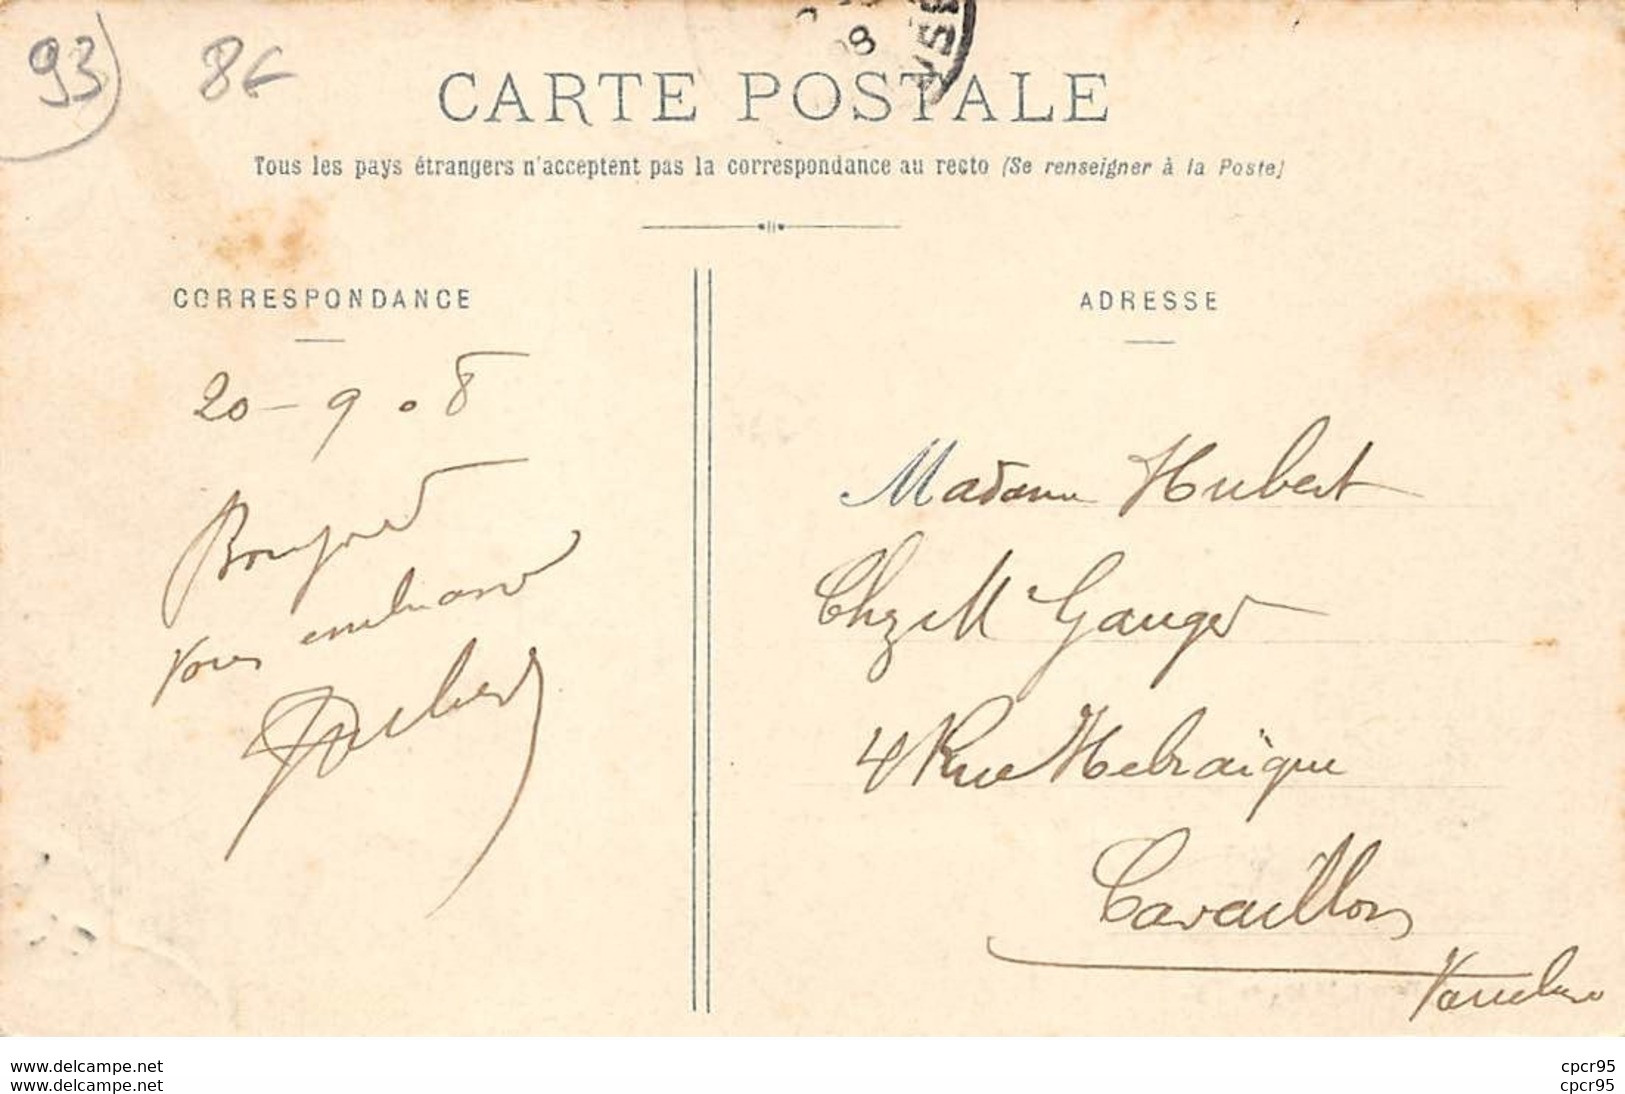 93 8€
CARTE POSTALE
Tous les pays étrangers n'acceptent pas la correspondance au recto (Se renseigner à la Poste)
CORRESPONDANCE
ADRESSE
20-9.08
vous embrasse
Hubert
Madame Hubert
Chez M Gauger
4 Rue Hebraïque
Cavaillon
Vaucluse
www.delcampe.net
www.delcampe.net
cpcr95
cpcr95